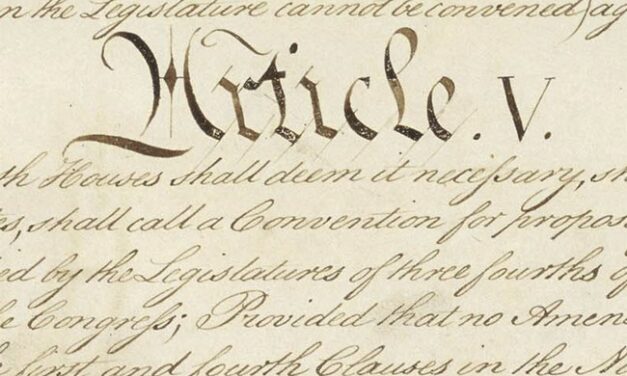 n the Legislature cannot be convened) ag
Article. V.
th Houses shall deem it neceſsary, sh
es, shall call a Convention for propos
ied by the Legislatures of three fourths of
e Congreſs; Provided that no Amen
e first and fourth Clauses in the Ni